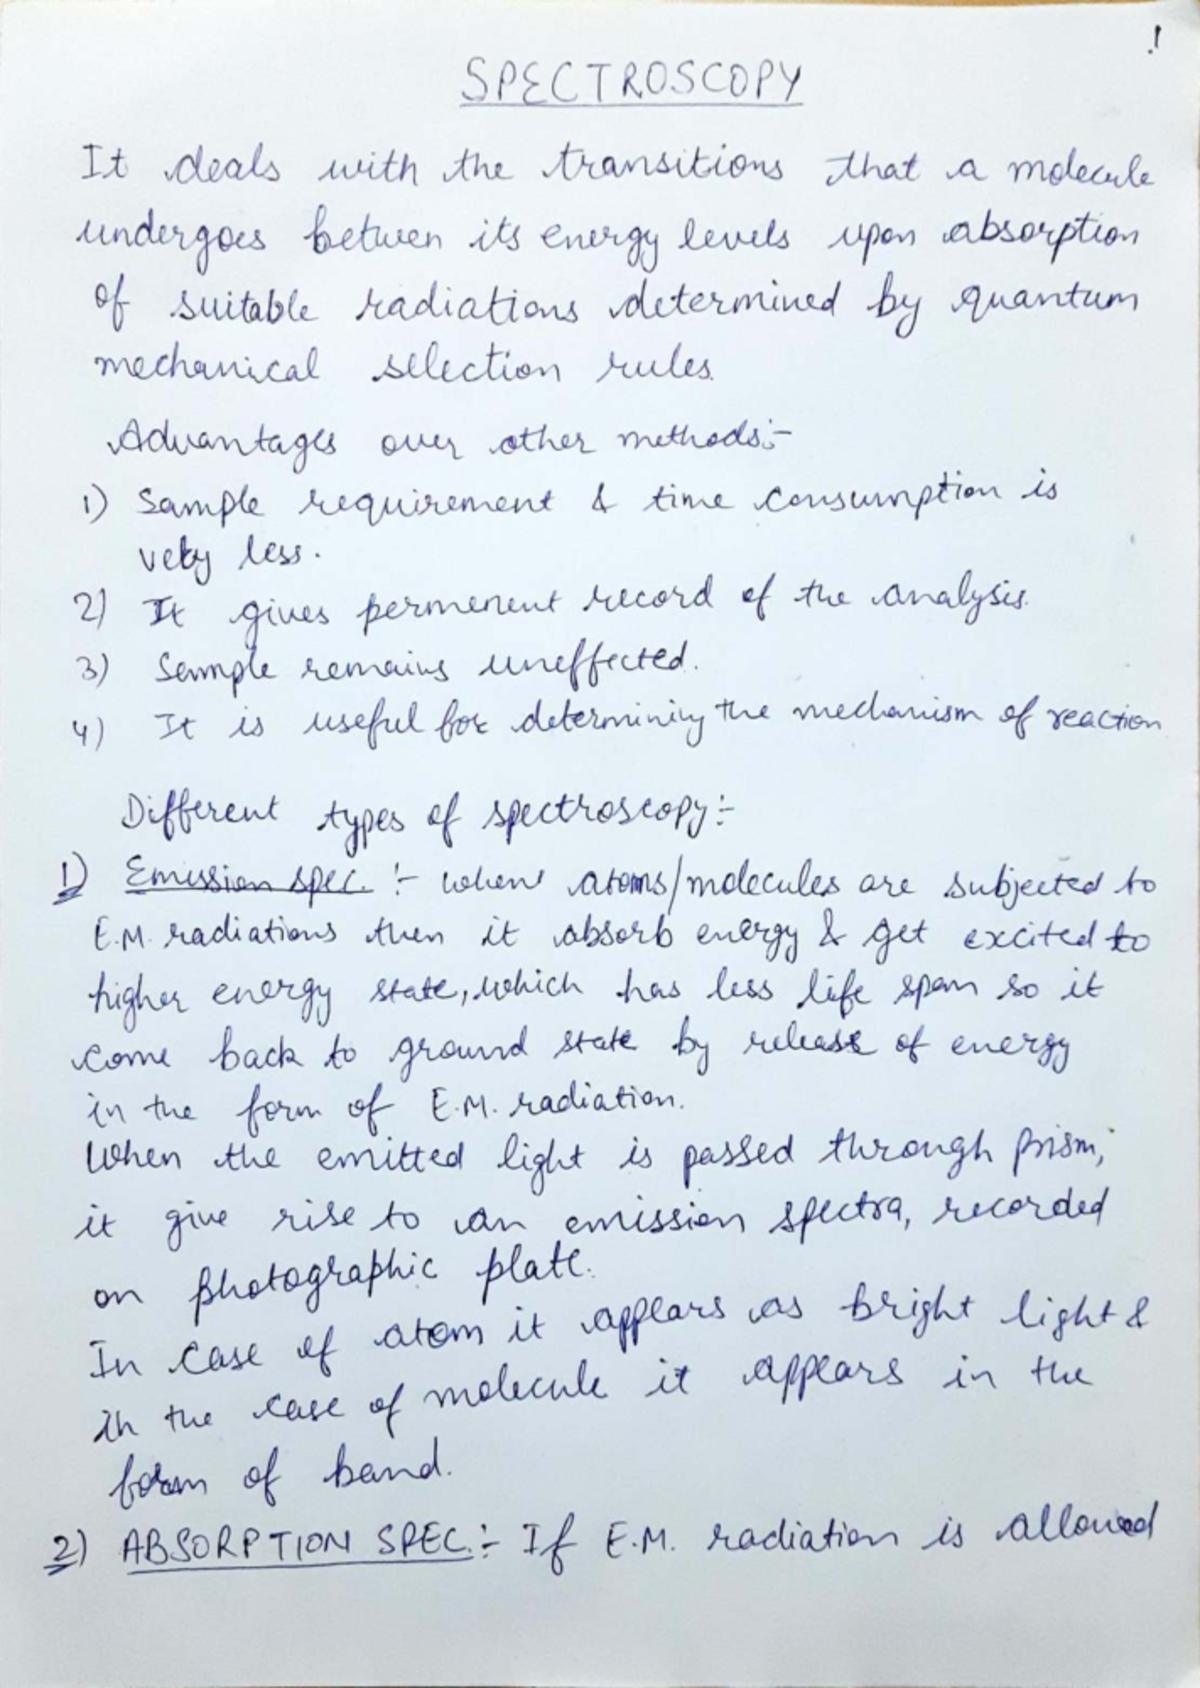 1
SPECTROSCOPY
It deals with the transitions that a molecule
undergoes between its energy levels upon absorption
of suitable radiations determined by quantum
mechanical selection rules.
Advantages over other methods:-
1) Sample requirement & time consumption is
very less.
2) It gives permenent record of the analysis.
3) Sample remains uneffected.
4) It is useful for determining the mechanism of reaction
Different types of spectroscopy:-
1) Emission spec. :- when atoms/molecules are subjected to
E.M. radiations then it absorb energy & get excited to
higher energy state, which has less life span so it
come back to ground state by release of energy
in the form of E.M. radiation.
When the emitted light is passed through prism,
it give rise to an emission spectra, recorded
on photographic plate.
In case of atom it appears as bright light &
in the case of molecule it appears in the
form of band.
2) ABSORPTION SPEC.:- If E.M. radiation is allowed